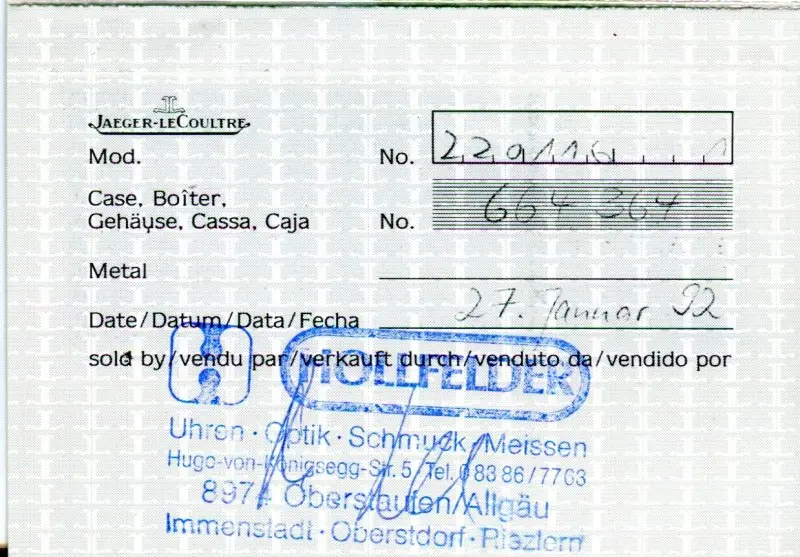 JAEGER-LECOULTRE
Mod. No. 220116
Case, Boîter,
Gehäuse, Cassa, Caja No. 664 364
Metal
Date/Datum/Data/Fecha 27. Januar 92
sold by/vendu par/verkauft durch/venduto da/vendido por
HOLLFELDER
Uhren · Optik · Schmuck · Meissen
Hugo-von-Königsegg-Str. 5 / Tel. 0 83 86 / 7763
8974 Oberstaufen/Allgäu
Immenstadt · Oberstdorf · Riezlern